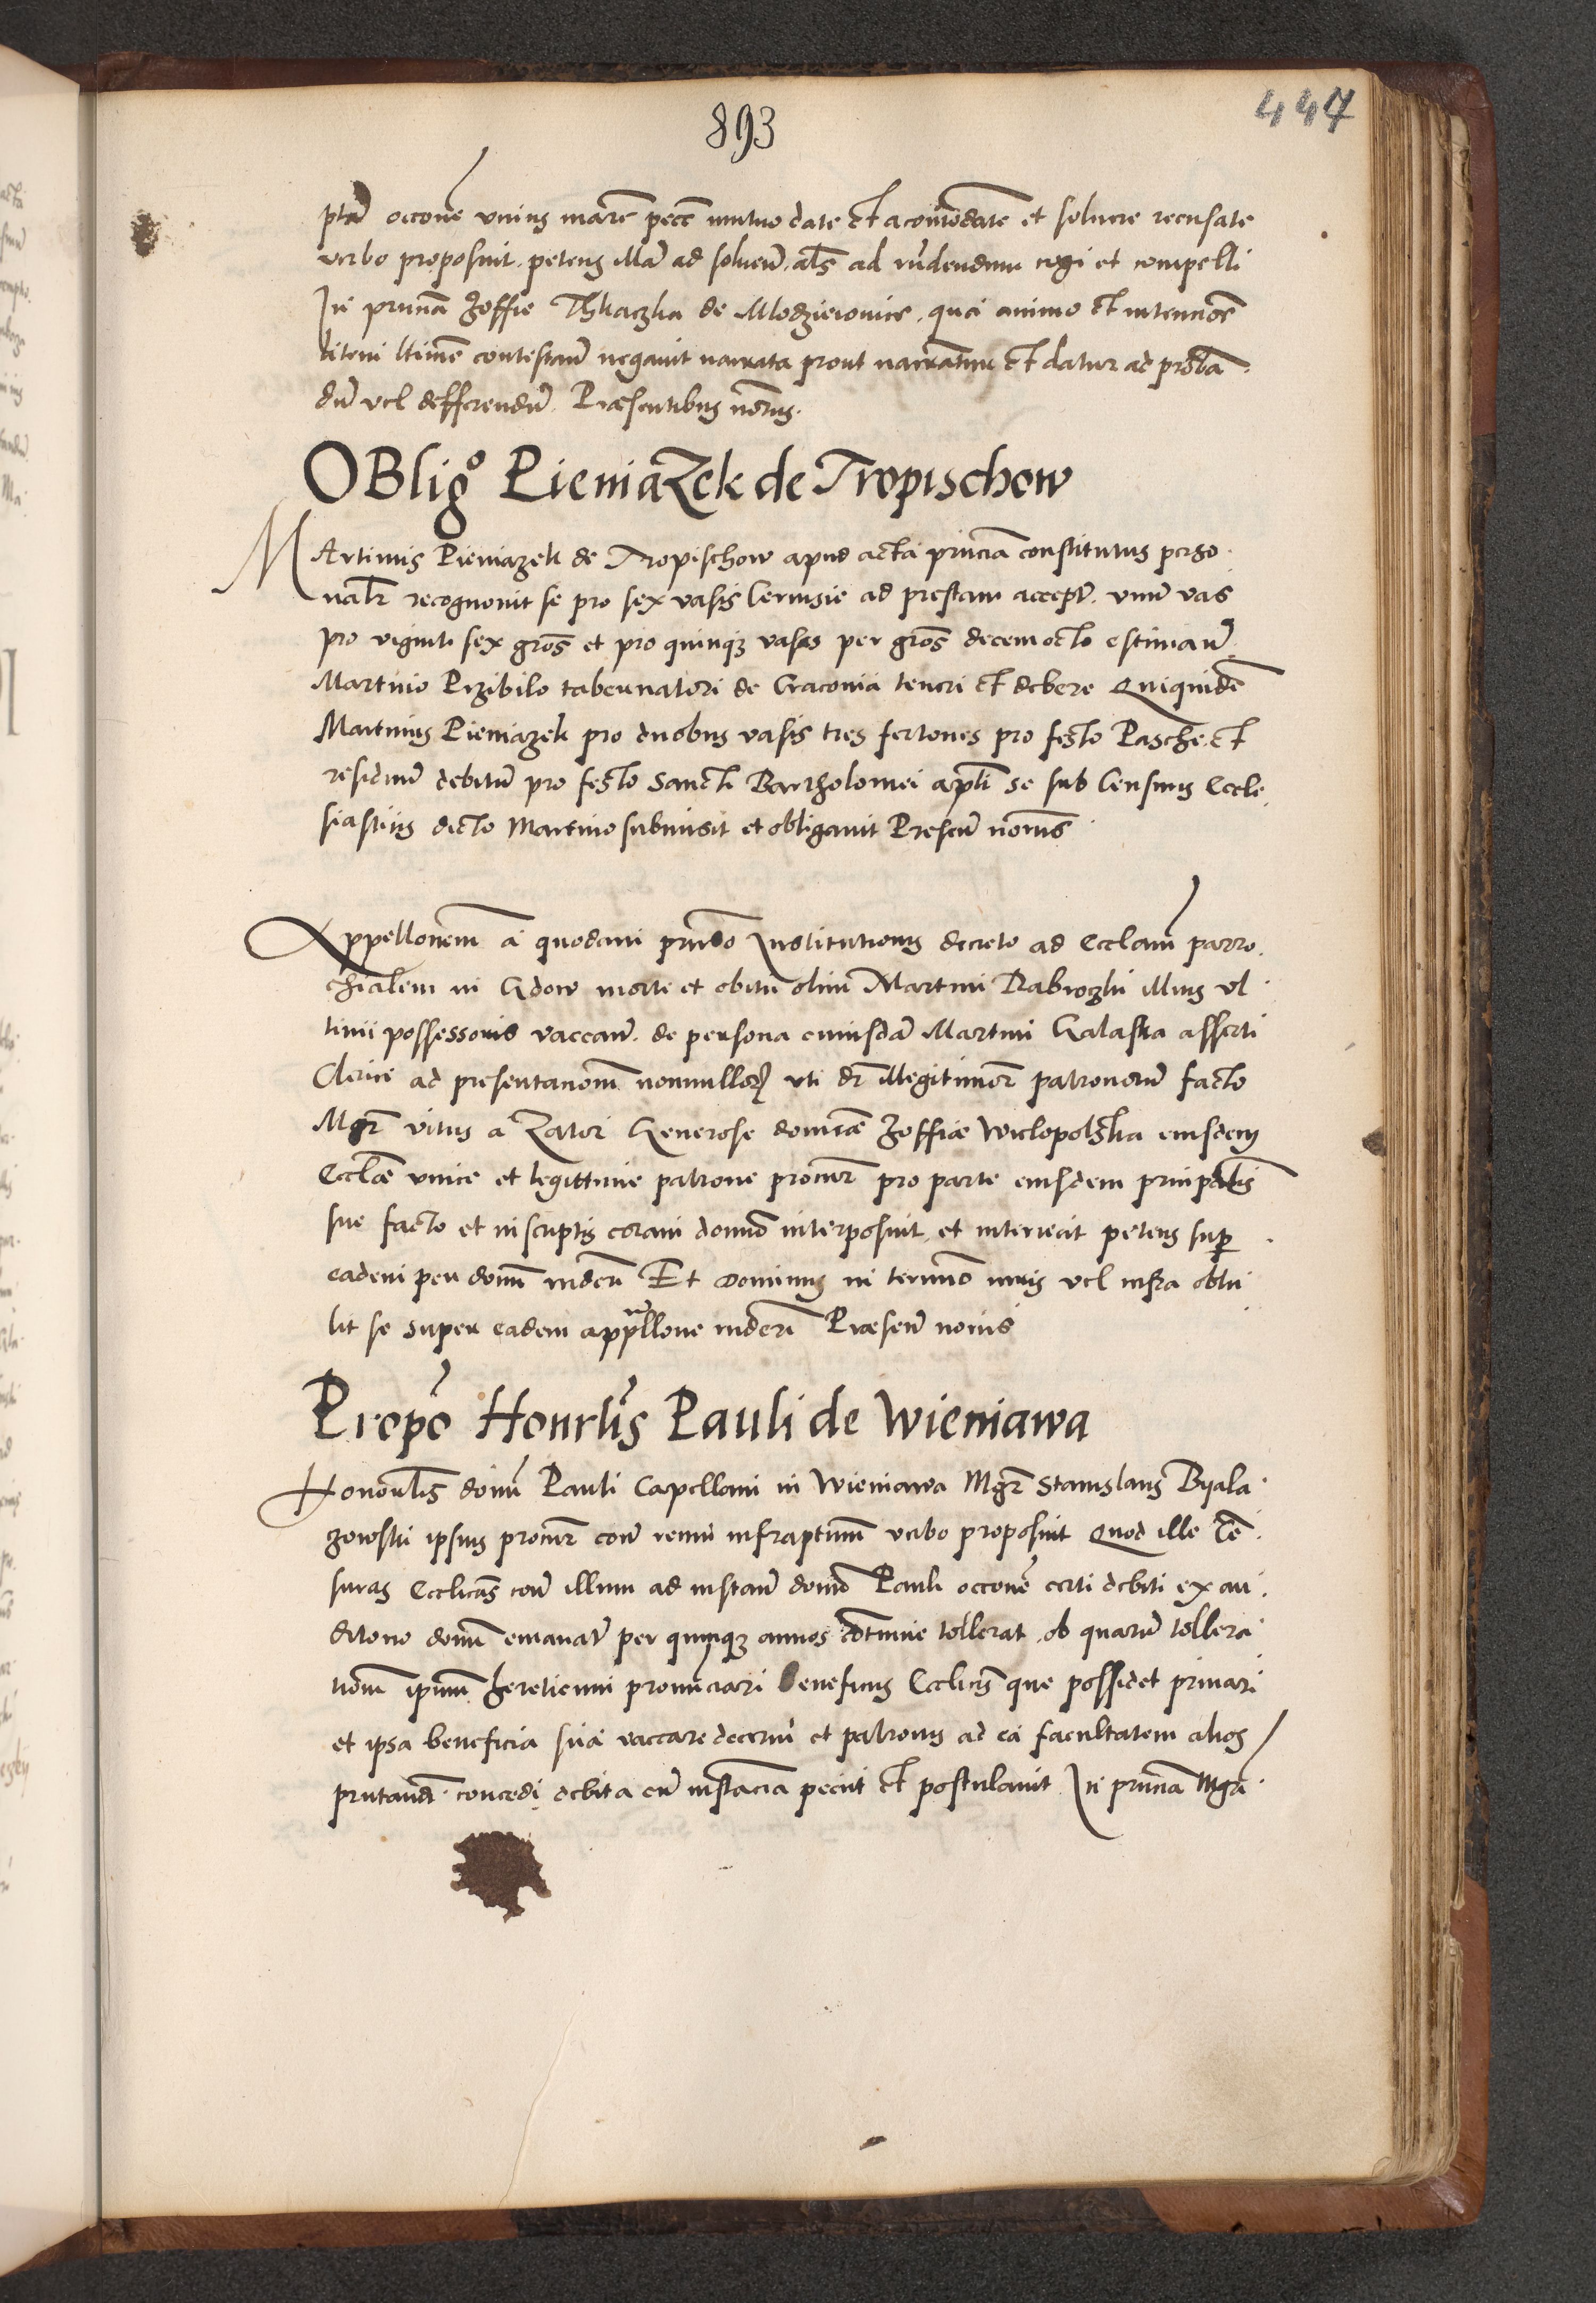 893
447
ptam occone unius marce pecc mutuo date et acomodate et solvere recusate
verbo proposuit petens illam ad solven als ad rndendum cogi et compelli
In pruncia Zoffie Thkaczka de Mlodzieiovice que animo et intencione
litem ltime contestan negavit narrata prout narrantur et datur ad proban
dum vel defferendum Praesentibus notrys
OBligo PieniaZek de Tropischow
MArtinus Pieniazek de Tropischow apud acta prncia constitutus perso
nalr recognovit se pro sex vasis Cervisie ad prestam accept unum vas
pro viginti sex gros et pro quinque vasis per gros decem octo estiman
Martino Przibilo tabernatori de Cracovia teneri et debere Quiquidem
Martinus Pieniazek pro duobus vasis tres fertones pro festo Pasche et
residuum debitum pro festo Sancti Bartholomei apli se sub Censuris Eccle
siasticis dicto Martino submisit et obligavit Presen notrus
Appellonem a quodam prnso Institutionis decreto ad Ecclam parro
chialem in Gdow morte et obitu olim Martini Dabrozki illius ul
timi possessoris vaccan de persona cuiusdam Martini Galaska asserti
Clerici ad presentacionem nonnullor uti dr illegitimor patronorum facto
Mgr Vitus a Zator Generose domine Zoffiae Wielopolska eiusdem
Ecclae unice et legittime patrone procur pro parte eiusdem principalis
sue facto et in scriptis coram domino interposuit et interiecit petens super
eadem per domin rnderi Et Dominus in termino iuris vel infra obtu
lit se super eadem appellone rnderi Praesen notris
Propo Honrlis Pauli de Wieniawa
Honorlis domin Pauli Capellani in Wieniawa Mgr Stanislaus Byala
zowski ipsius procur contra reum infrascptum verbo proposuit Quod ille Cen
suras Ecclicas contra illum ad instan domino Pauli occone certi debiti ex au
ditorio domin emanat per quinque annos contumie tollerat ob quarum tollera
tionem ipsum hereticum pronunciari beneficiis Ecclicis que possidet privari
et ipsa beneficia sua vaccare decerni et patronis ad ea facultatem alios
prntandi concedi debita cum instancia peciit et postulavit In pruncia Mgri